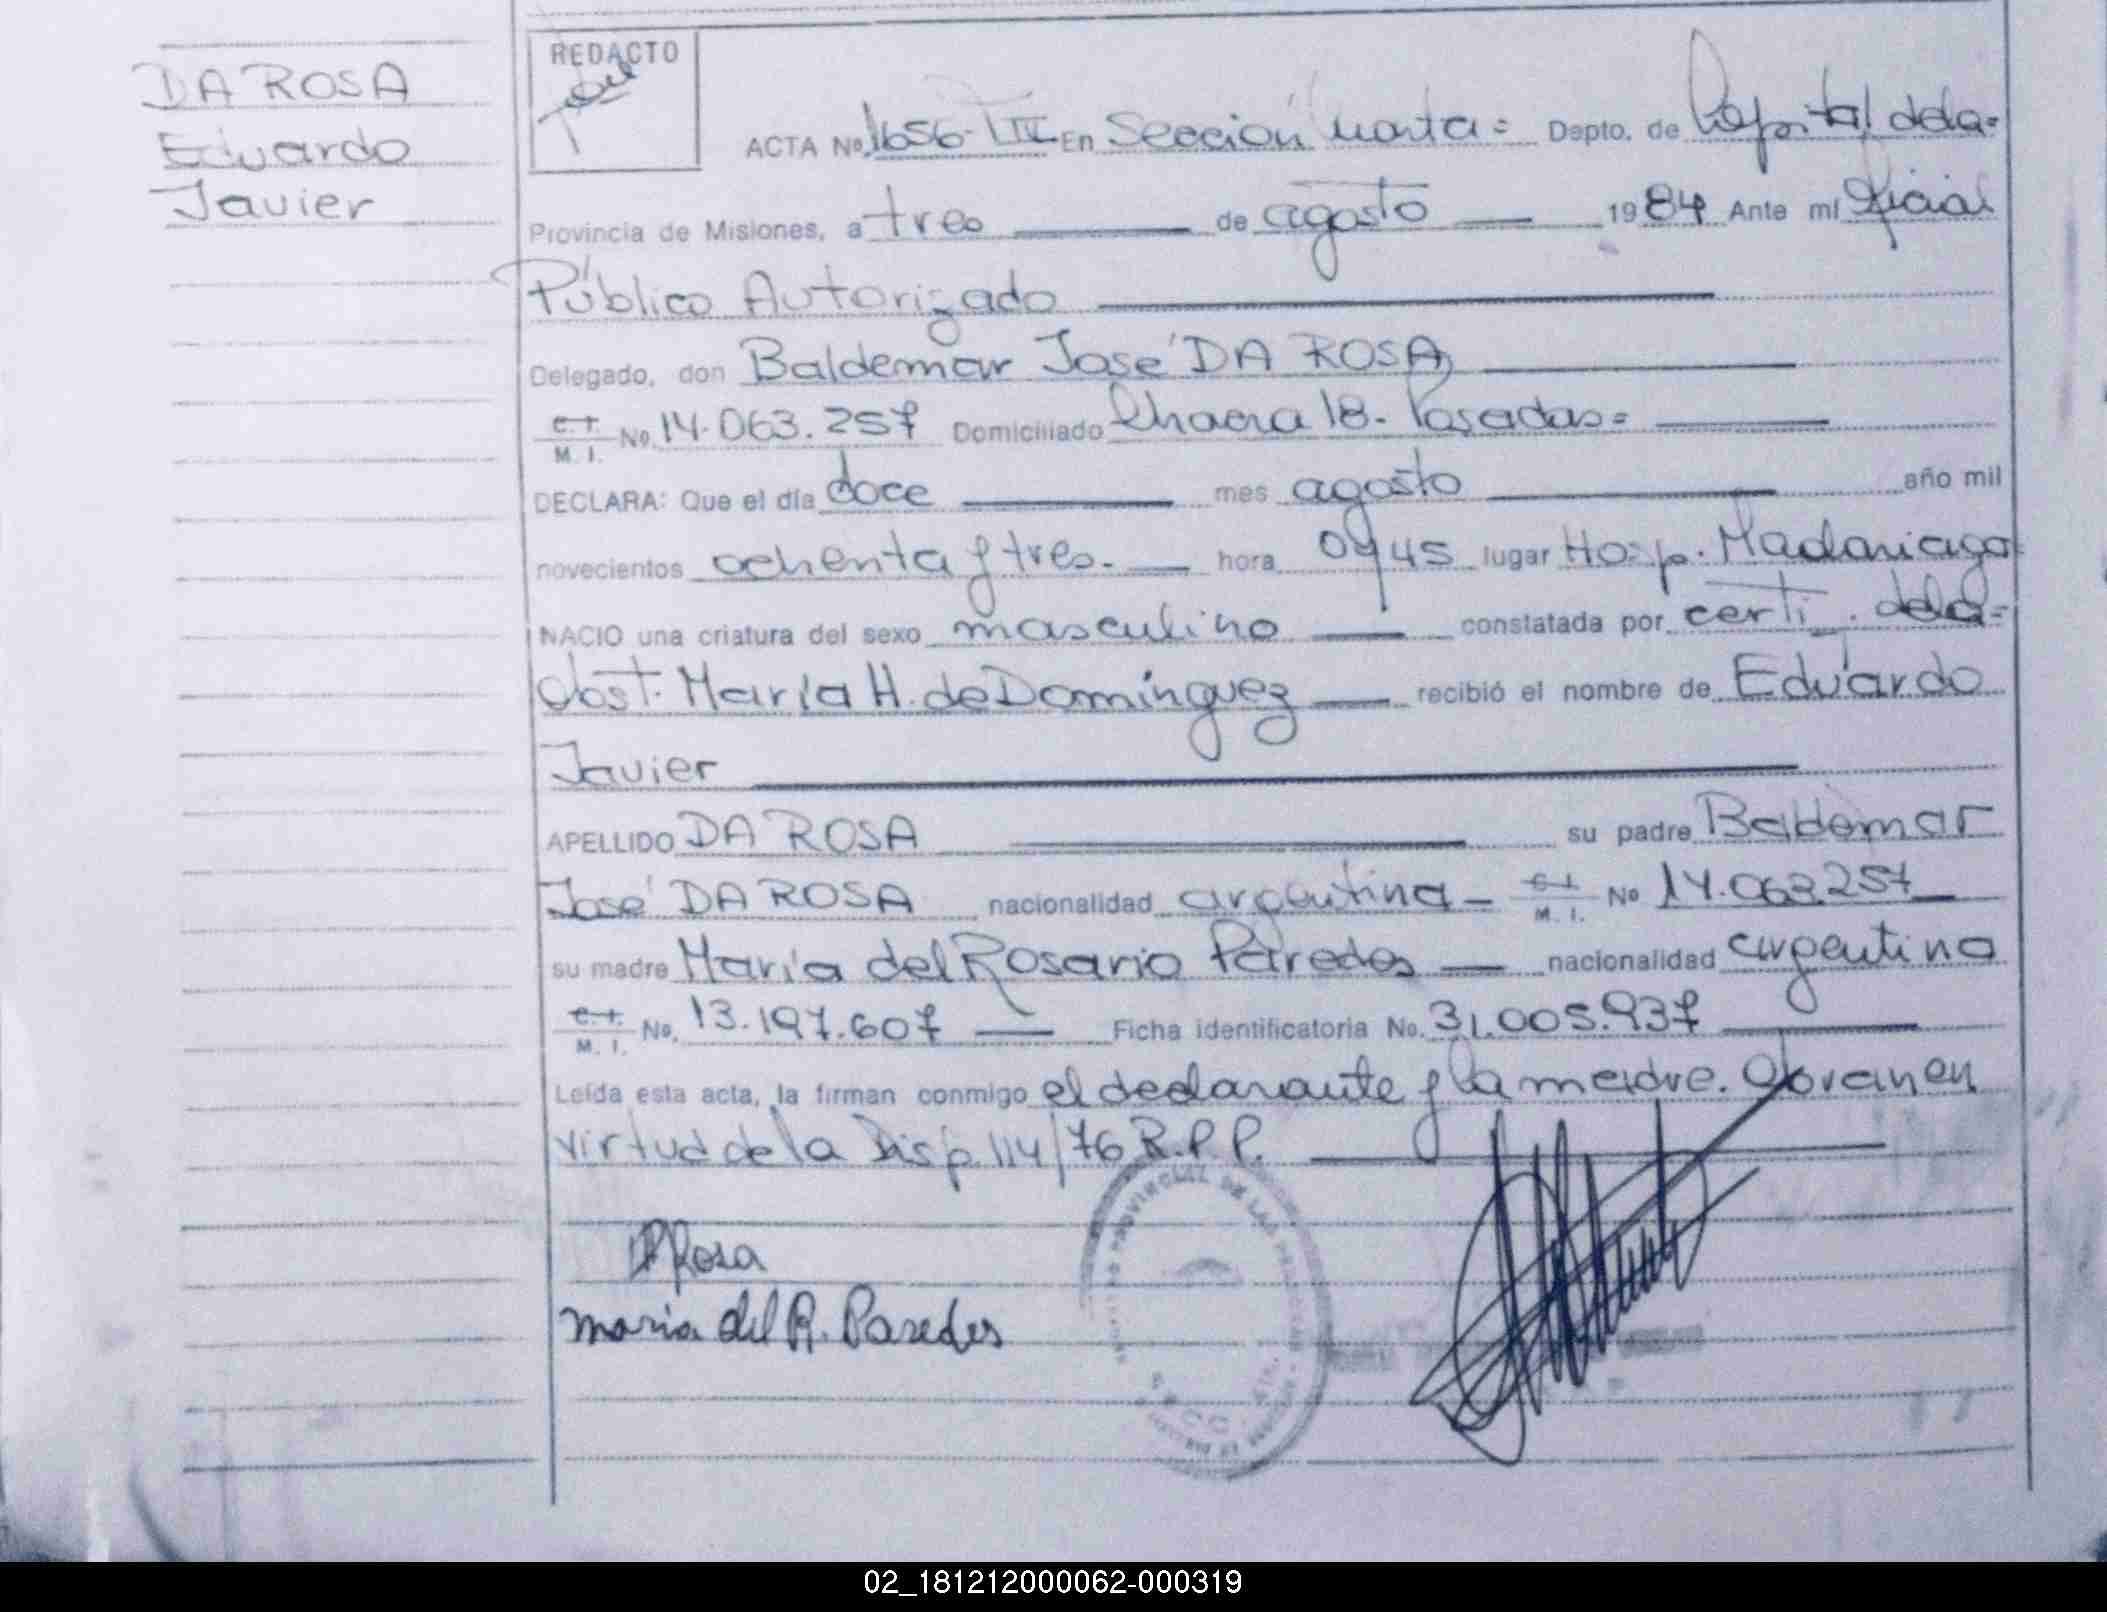 DA ROSA
Eduardo
Javier
REDACTO
ACTA No 1656- TIII En Sección Cuarta= Depto. de Capital dela=
Provincia de Misiones, a tres de agosto 1984 Ante mi Oficial
Público Autorizado
Delegado, don Baldemar José DA ROSA
C.I. M. I. No. 14.063.257 Domiciliado Chacra 18- Posadas=
DECLARA: Que el día doce mes agosto año mil
novecientos ochenta y tres.- hora 0945 lugar Hosp. Madariaga
NACIO una criatura del sexo masculino constatada por certi. dela=
Obst. María H. de Domínguez recibió el nombre de Eduardo
Javier
APELLIDO DA ROSA su padre Baldemar
José DA ROSA nacionalidad argentina - C.I. M. I. No 14.063.257
su madre María del Rosario Paredes nacionalidad argentina
C.I. M. I. No. 13.197.607 Ficha identificatoria No. 31.005.937
Leída esta acta, la firman conmigo el declarante y la madre. Obran en
virtud de la Disp. 114/76 R.P.P.
Rosa
maria del R. Paredes
PROVINCIAL DE LAS
02_181212000062-000319